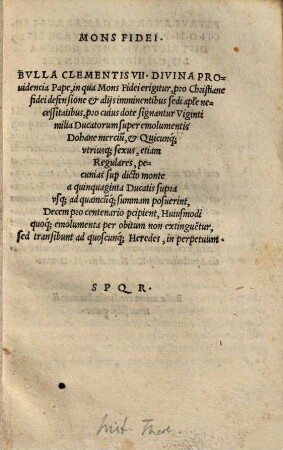 MONS FIDEI.
BVLLA CLEMENTIS VII. DIVINA PRO-
uidencia Pape, in qua Mons Fidei erigitur, pro Christiane
fidei defensione & alijs imminentibus sedi aplę ne-
cessitatibus, pro cuius dote signantur Viginti
milia Ducatorum super emolumentis
Dohane merciũ, & Quicunq;
utriusq; sexus, etiam
Regulares, pe-
cunias sup dicto monte
a quinquaginta Ducatis supra
vsq; ad quamcũq; summam posuerint,
Decem pro centenario pcipient, Huiusmodi
quoq; emolumenta per obitum non extinguẽtur,
sed transibunt ad quoscunq; Heredes, in perpetuum.
S P Q R.